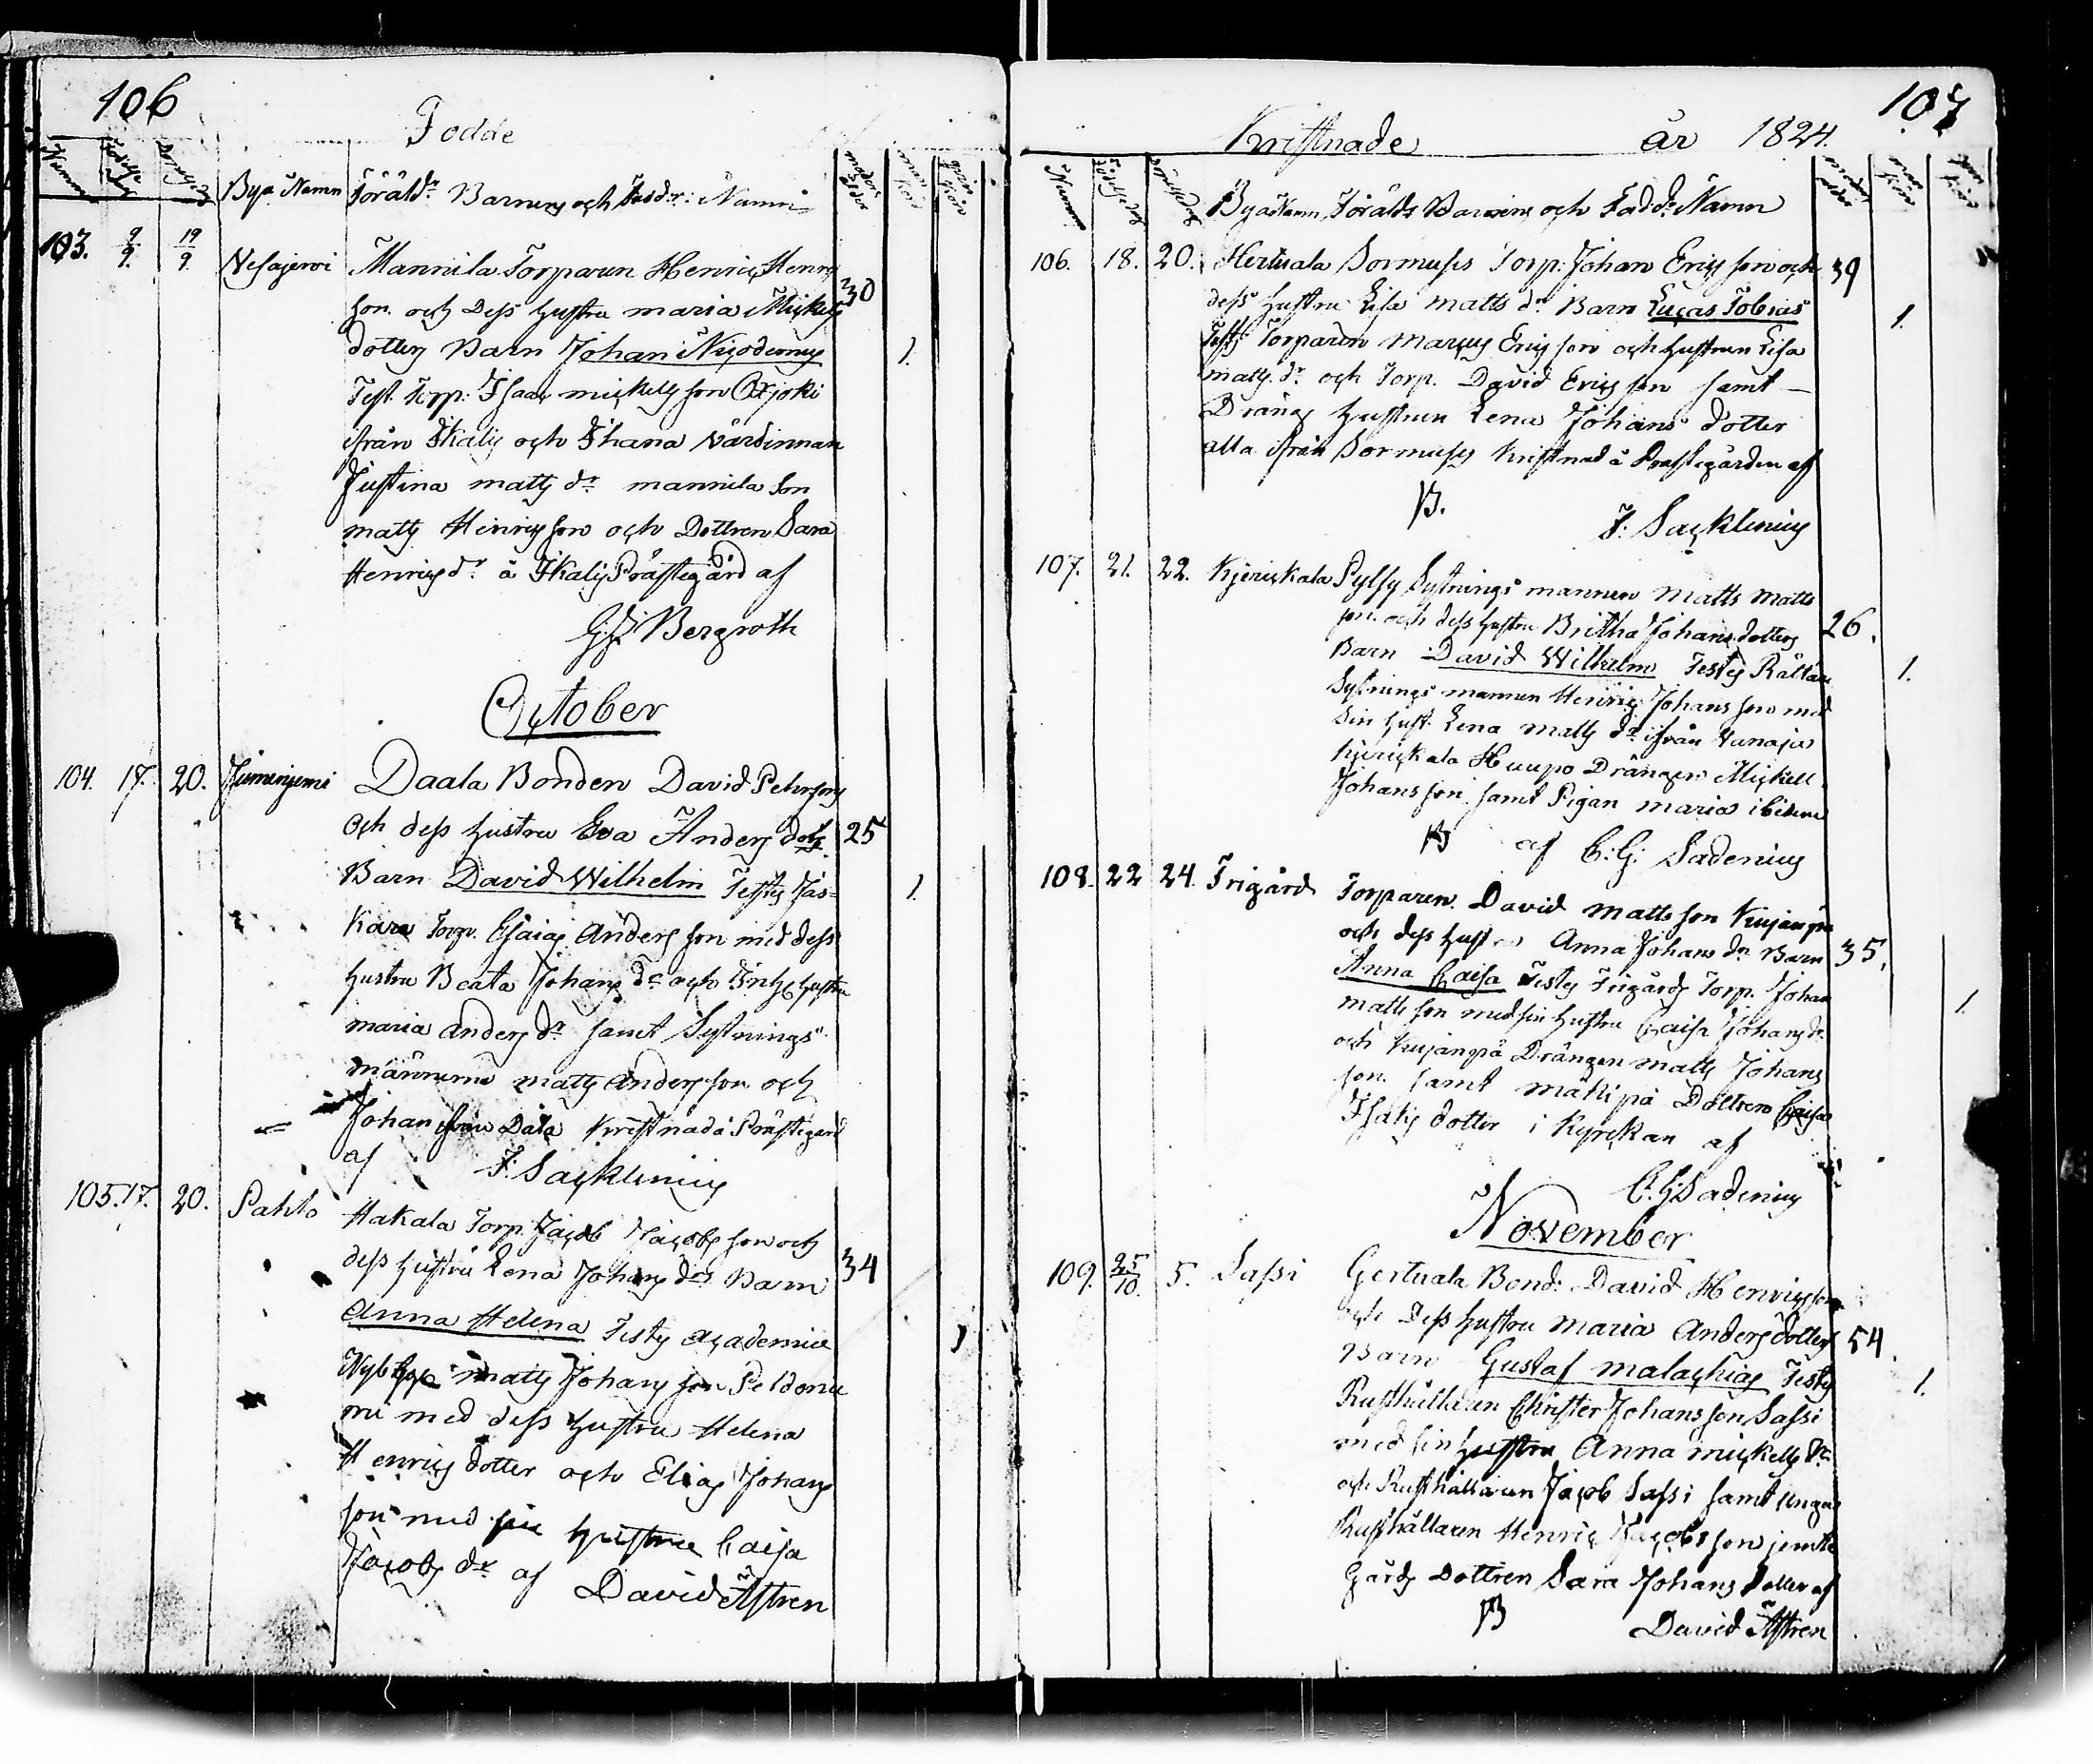 106
Födde
Bya Namn Föräld. Barnens och Fadder: Namn
103. 9/9. 19/9. Vesajervi Mannila Torparen Henric Henrics
son. och Dess hustru maria Mickels 30
dotters Barn Johan Nicodemus 1.
Test. Torp: Isaac mickels son Oxjoki
ifrån Ikalis och Ihana värdinnan
Justina matts dr mannila son
matts Henrics son och Dottren Sara
Henrics dr å Ikalis Prästegård af
Bergroth
October
104. 17. 20. Daala Bonden David Pehrsons
och dess hustru Eva Anders dotts. 25
Barn David Wilhelm Testes Jäs= 1.
kare Torp. Esaias Anders son med dess
hustru Beata Johans dr och hustru
maria anders dr samt Sytnings
männerne matts anders son och
Johan ifrån Dala Kristnad å Prästegård
af J: Sacklenius
105. 17. 20. Pahto Hakala Torp. Jacob Jacobs son och
dess hustru Lena Johans dr Barn 34
Anna Helena Testes academiæ 1
matts Johans son Peldonie
mi med dess hustru Helena
Henrics dotter och Elias Johans
son med sin hustru Caisa
Jacobs dr af David Åstren
107
Kristnade år 1824.
Bya Namn, Föräld: Barnens och Fadd: Namn
106. 18. 20. Hertuala Sormuses Torp: Johan Erics son och 39
dess hustru Lisa matts dr Barn Lucas Tobias 1.
Test: Torparen marcus Erics son och hustrun Lisa
matts dr och Torp. David Erics son samt
Drängs hustrun Lena Johans dotter
alla ifrån Sormuses kristnad å Prästegården af
J: Sacklenius
107. 21. 22. Kjerickala Pylsy Sytnings mannen matts matts
son och dess hustru Britha Johans dotters 26.
Barn David Wilhelm Testes Rättare 1.
Sytnings mannen Henric Johans son med
sin hust. Lena matts dr ifrån Vanaja
kjerickala Huupo Drängen Mickell
Johans son samt Pigan maria ibidem
af C: G: Sadenius
108. 22 24. Frigård Torparen David matts son Kujanpä
och dess hustru Anna Johans dr Barn 35.
Anna Caisa Testes Frigårds Torp. Johan 1.
matts son med sin hustru Caisa Johans dr
och Kujanpä Drängen matts Johans
son samt mäkipä Dottren Caisa
Isaks dotter i kyrckan af
C: G: Sadenius
November
109. 25/10. 5. Sassi Gertuala Bond: David Henrics son
och Dess hustru maria Anders dotters 54.
Barn Gustaf malachias Testes 1.
Rusthållaren Christer Johans son Sassi
med sin hustru Anna mickells dr
och Rusthållaren Jacob Sassi samt unga
Rusthållaren Henric Jacobs son jemte
Gårds Dottren Sara Johans dotter af
David Åstren